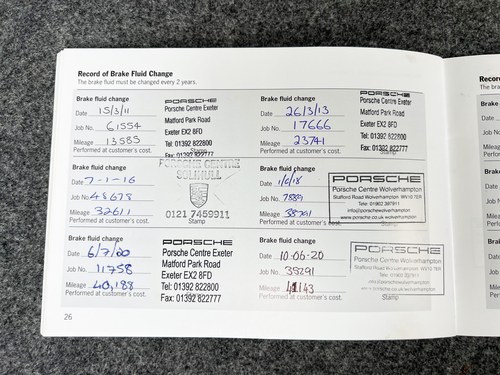 Record of Brake Fluid Change
The brake fluid must be changed every 2 years.
Brake fluid change
Date 15/3/11
Job No. 61554
Mileage 13585
Performed at customer's cost.
PORSCHE
Porsche Centre Exeter
Matford Park Road
Exeter EX2 8FD
Tel: 01392 822800
Fax: 01392 822777
Stamp
Brake fluid change
Date 26/3/13
Job No. 17666
Mileage 23741
Performed at customer's cost.
PORSCHE
Porsche Centre Exeter
Matford Park Road
Exeter EX2 8FD
Tel: 01392 822800
Fax: 01392 822777
Stamp
Brake fluid change
Date 7-1-16
Job No. 48678
Mileage 32611
Performed at customer's cost.
PORSCHE CENTRE
SOLIHULL
0121 7459911
Stamp
Brake fluid change
Date 1/6/18
Job No. 78891
Mileage 38791
Performed at customer's cost.
PORSCHE
Porsche Centre Wolverhampton
Stafford Road Wolverhampton WV10 7ER
Tel: 01902 397911
info@porschewolverhampton
www.porsche.co.uk/wolverhampton
Stamp
Brake fluid change
Date 6/7/00
Job No. 11758
Mileage 40,188
Performed at customer's cost.
PORSCHE
Porsche Centre Exeter
Matford Park Road
Exeter EX2 8FD
Tel: 01392 822800
Fax: 01392 822777
Brake fluid change
Date 10-06-20
Job No. 39291
Mileage 41143
Performed at customer's cost.
PORSCHE
Porsche Centre Wolverhampton
Stamp
26
Record
The bra
Brake
Date
Job No
Mileage
Perform
Brake
Date
Job No
Mileage
Perform
Brake
Date
Job No
Mileage
Perform